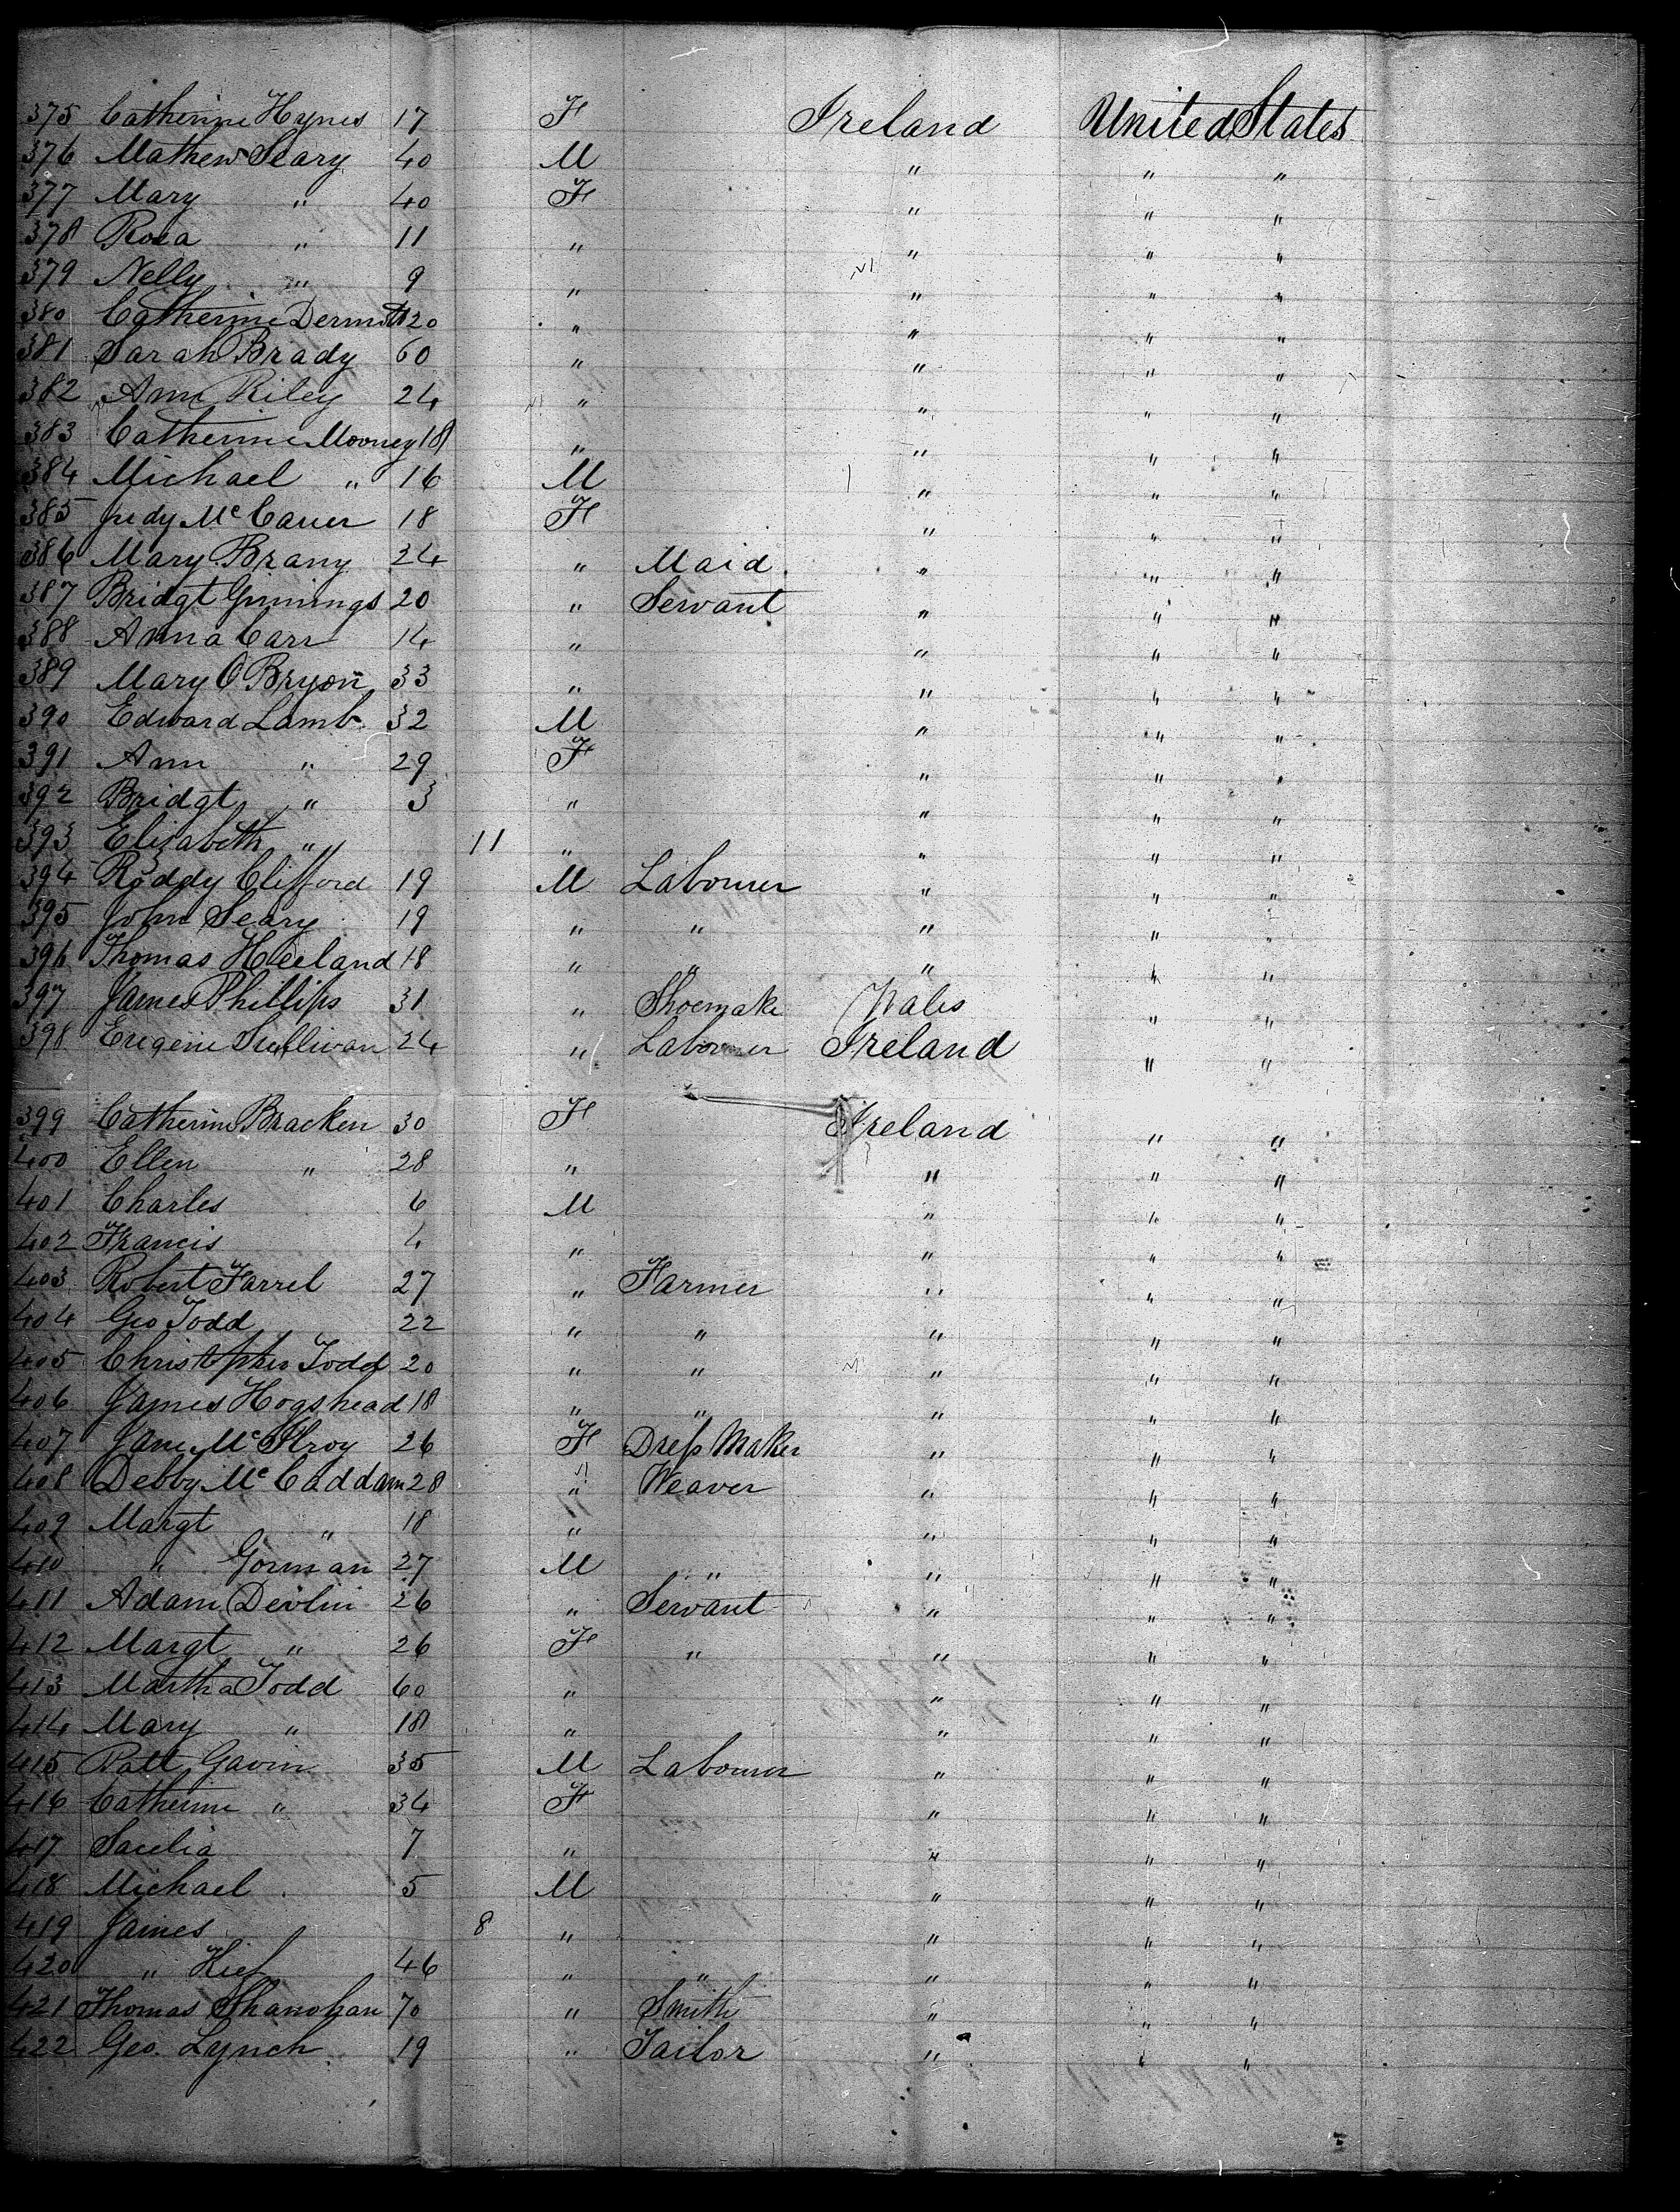 375 Catherine Hynes 17 F Ireland United States
376 Mathew Seary 40 M " " "
377 Mary " 40 F " " "
378 Rosa " 11 " " " "
379 Nelly " 9 " " " "
380 Catherine Dermott 20 " " " "
381 Sarah Brady 60 " " " "
382 Ann Riley 24 " " " "
383 Catherine Mooney 18 " " " "
384 Michael " 16 M " " "
385 Judy McCauer 18 F " " "
386 Mary Brany 24 " Maid " " "
387 Bridgt Ginnings 20 " Servant " " "
388 Anna Carr 14 " " " "
389 Mary O Bryon 33 " " " "
390 Edward Lamb 32 M " " "
391 Ann " 29 F " " "
392 Bridgt " 3 " " " "
393 Elisabeth " 11 " " " "
394 Roddy Clifford 19 M Labourer " " "
395 John Seary 19 " " " " "
396 Thomas Heeland 18 " " " " "
397 James Phillips 31 " Shoemake Wales " "
398 Eugene Sullivan 24 " Labourer Ireland " "
399 Catherine Bracken 30 F Ireland " "
400 Ellen " 28 " " " "
401 Charles 6 M " " "
402 Francis 4 " " " "
403 Robert Farrel 27 " Farmer " " "
404 Geo Todd 22 " " " " "
405 Christopher Todd 20 " " " " "
406 James Hogshead 18 " " " " "
407 Jane McIlroy 26 F Dress Maker " " "
408 Debby McCaddam 28 " Weaver " " "
409 Margt " 18 " " " "
410 " Gorman 27 M " " " "
411 Adam Devlin 26 " Servant " " "
412 Margt " 26 F " " " "
413 Martha Todd 60 " " " "
414 Mary " 18 " " " "
415 Patt Gavin 35 M Labourer " " "
416 Catherine " 34 F " " "
417 Sacelia 7 " " " "
418 Michael 5 M " " "
419 James 8 " " " "
420 " Kief 46 " " " " "
421 Thomas Shanohan 70 " Smith " " "
422 Geo. Lynch 19 " Tailor " " "